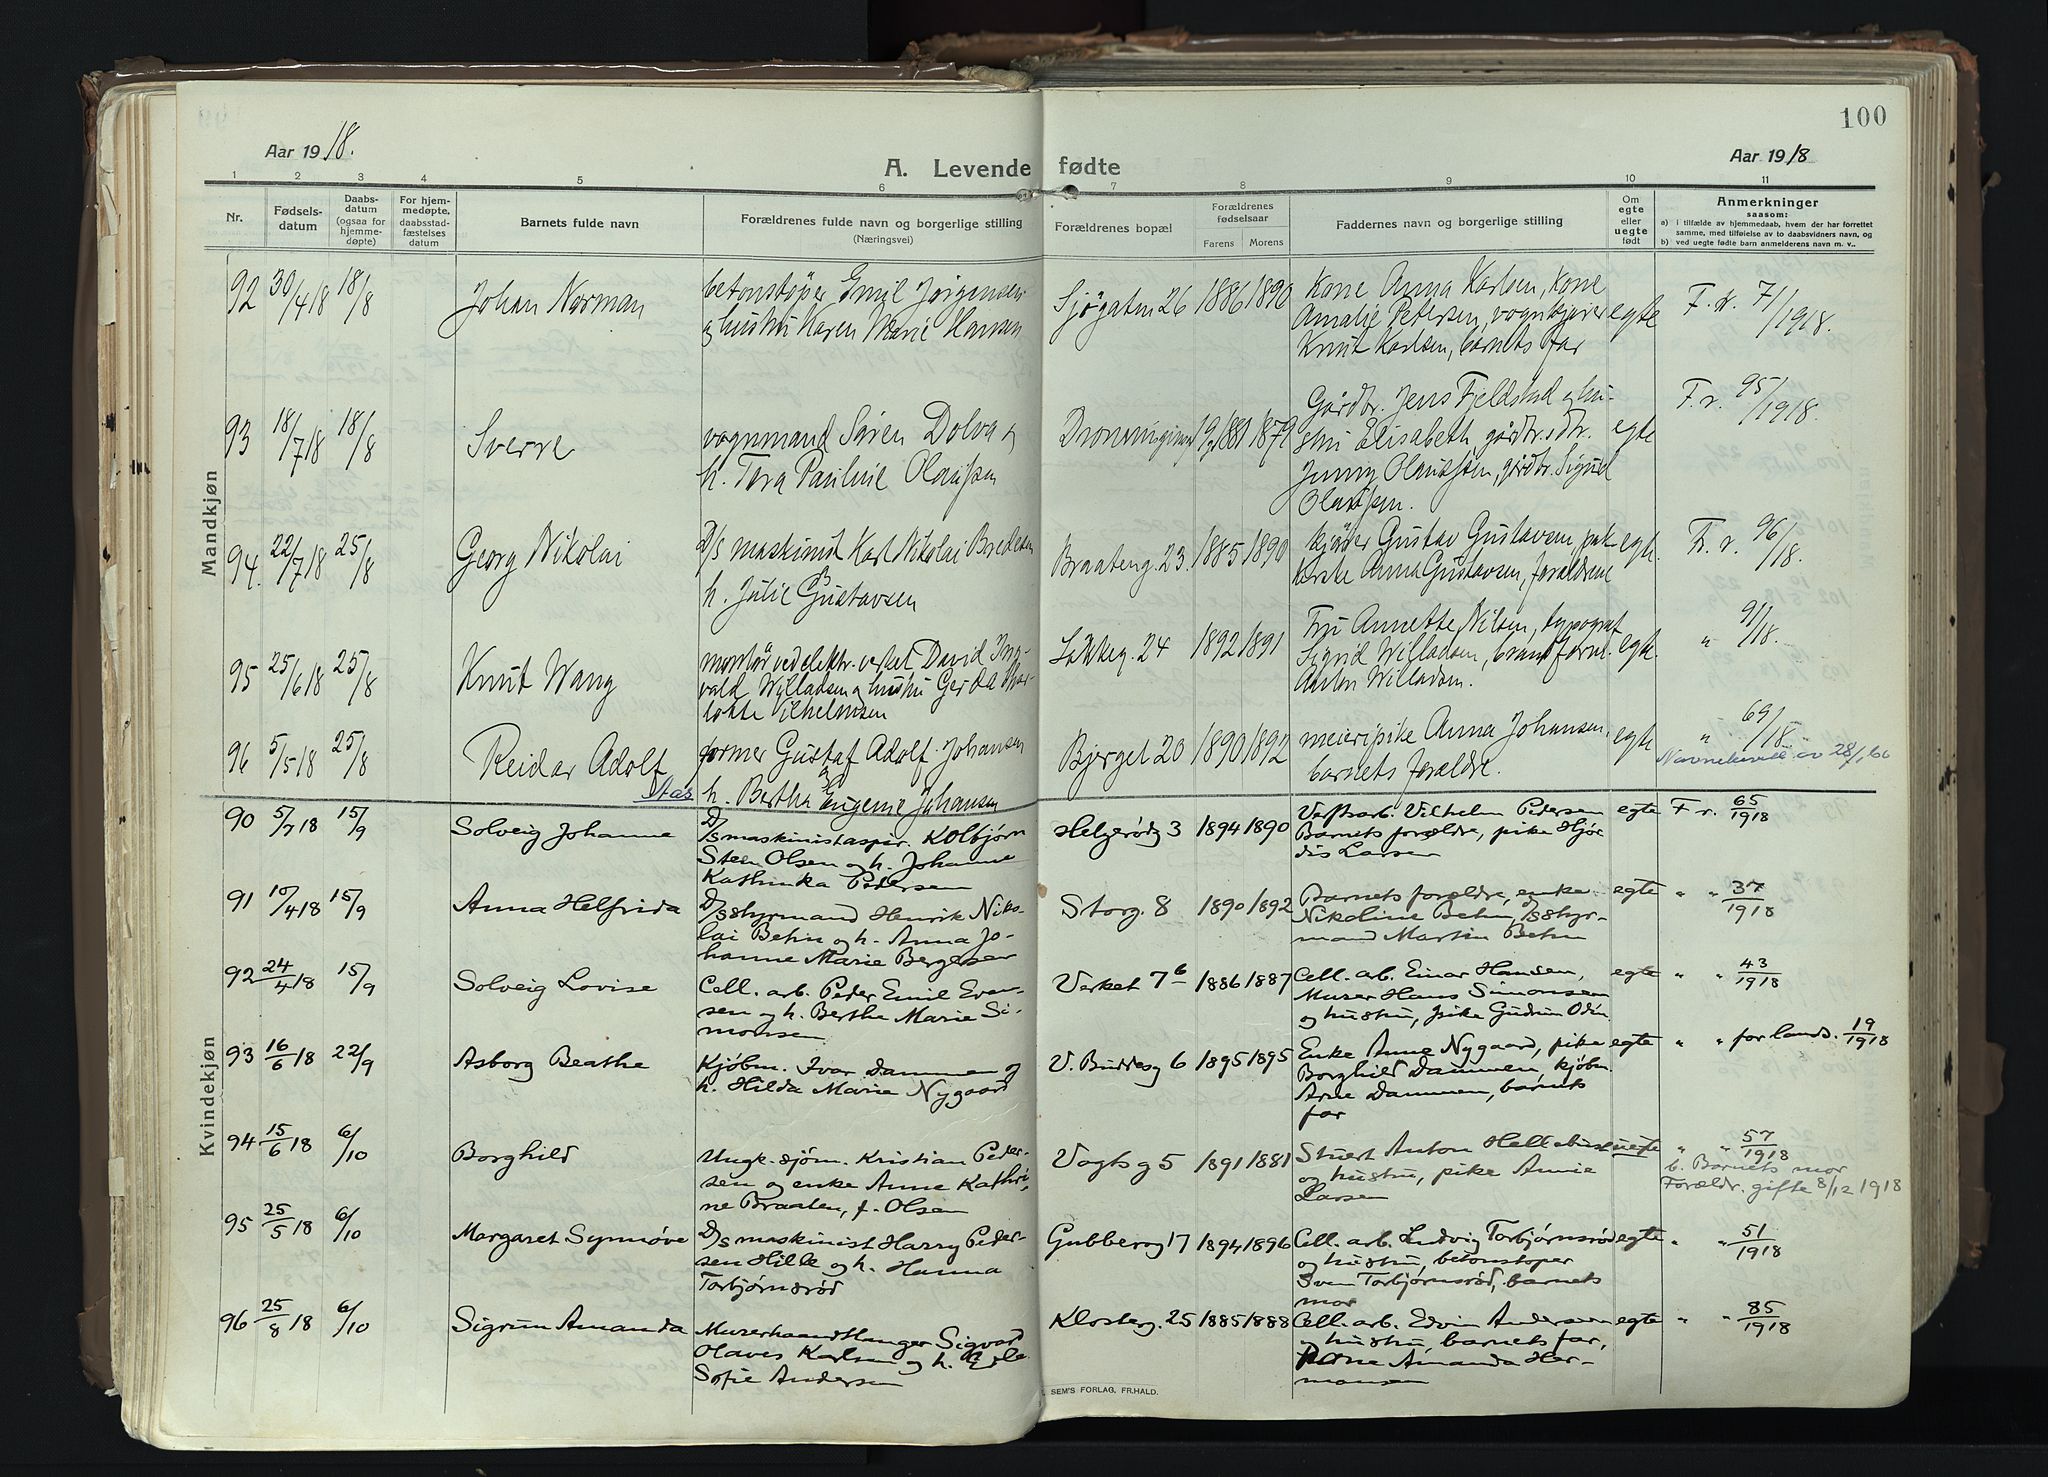 100
Aar 1918.
A. Levende fødte
Aar 1918
1 2 3 4 5 6 7 8 9 10 11
Nr.
Fødsels-
datum
Daabs-
datum
(ogsaa for
hjemme-
døpte)
For hjem-
medøpte,
daabsstad-
fæstelses
datum
Barnets fulde navn
Forældrenes fulde navn og borgerlige stilling
(Næringsvei)
Forældrenes bopæl
Forældrenes
fødselsaar
Farens Morens
Faddernes navn og borgerlige stilling
Om
egte
eller
uegte
født
Anmerkninger
saasom:
a) i tilfælde av hjemmedaab, hvem der har forrettet
samme, med tilføielse av to daabsvidners navn, og
b) ved uegte fødte barn anmelderens navn m. v..
Mandkjøn
92 30/4 18 18/8 Johan Norman
betonstøper Emil Jørgensen
og hustru Karen Marie Hansen
Sjøgaten 26 1886 1890
Kone Anna Karlsen, Kone
Amalie Petersen, vognkjører
Knut Karlsen, barnets far
egte F. r. 7/1918.
93 18/7 18 18/8 Sverre
vognmand Søren Dolva og
h. Tora Pauline Olaussen
1881 1879
Gårdbr. Jens Fjeldstad og hu-
stru Elisabeth, gårdbr.s dtr.
Jenny Olaussen, gårdbr. Sigurd
Olaussen.
egte F. r. 95/1918.
94. 22/7 18 25/8 Georg Nikolai
D/s maskinist Karl Nikolai Bredesen
h. Julie B Gustavsen
Braateng. 23. 1885 1890
kjører Gustav Gustavsen, pak-
kerske Anna Gustavsen, forældrene
egte. F. r. 96/18.
95 25/6 18 25/8 Knut Wang
montør ved elektr. verket David Ing-
vald Willadsen og hustru Gerda Char-
lotte Vilhelmsen
Løkkeg. 24 1892 1891
Fru Annette Nilsen, typograf
Sigrid Willadsen, brandform.
Anton Willadsen.
egte. " 91/18.
96 5/5 18 25/8 Reidar Adolf
Stas
former Gustaf Adolf Johansen
og
h. Bertha Eugenie Johansen
Bjerget 20 1890 1892
meieripike Anna Johansen,
barnets forældre.
egte " 69/18
Navnebevill. av 28/1 60
Kvindekjøn
90 5/7 18 15/9 Solveig Johanne
D/s maskinistaspir. Kolbjørn
Steen Olsen og h. Johanne
Kathinka Pedersen
Helgerødg 3 1894 1890
Verkstarb. Vilhelm Pedersen
Barnets forældre, pike Hjør-
dis Larsen
egte F r. 65/1918
91 10/4 18 15/9 Anna Helfrida
D/s styrmand Henrik Niko-
lai Behn og h. Anna Jo-
hanne Marie Bergersen
Storg. 8 1890 1892
Barnets forældre, enke
Nikoline Behn, D/s styr-
mand Martin Behn
egte " " 37/1918
92 24/4 18 15/9 Solveig Lovise
Cell. arb. Peder Emil Even-
sen og h. Berthe Marie Si-
monsen
Verket 7 b 1886 1887
Cell. arb. Einar Hansen,
Murer Hans Simonsen
og hustru, pike Gudrun Odin
egte " " 43/1918
93 16/6 18 22/9 Asborg Beathe
Kjøbm. Ivar Dammen og
h. Hilda Marie Nygaard
V. Buddesg 6 1895 1895
Enke Anne Nygaard, pike
Borghild Dammen, kjøbm.
Arne Dammen, barnets
far
egte " " for lands. 19/1918
94 15/6 18 6/10 Borghild
Ungk. sjøm. Kristian Peder-
sen og enke Anne Kathri-
ne Braaten, f. Olsen
Vogtsg 5 1891 1881
Stuert Anton Hellebust
og hustru, pike Annie
Larsen
uegte " " 57/1918
b. Barnets mor
Forældr. gifte 8/12 1918
95 25/5 18 6/10 Margaret Synnøve
D/s maskinist Harry Peder-
sen Hille og h. Hanna
Torbjørnsrød
Gubberog 17 1894 1896
Cell. arb. Ludvig Torbjørnsrød
og hustru, betonstøper
Sven Torbjørnsrød, barnets
mor
egte " " 51/1918
96 25/8 18 6/10 Sigrun Amanda
Murerhaandlanger Sigvard
Olaves Karlsen og h.
Sofie Andersen
Klosterg. 25 1885 1888
Cell. arb. Edvin Andersen
og hustru, barnets far,
Kone Amanda Her-
mansen
egte " " 85/1918
SEM'S FORLAG, FR.HALD.